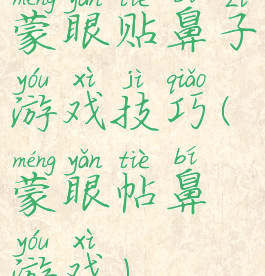 méng yǎn tiē bí zi
蒙眼贴鼻子
yóu xì jì qiǎo
游戏技巧(
méng yǎn tiè bí
蒙眼帖鼻
yóu xì
游戏)